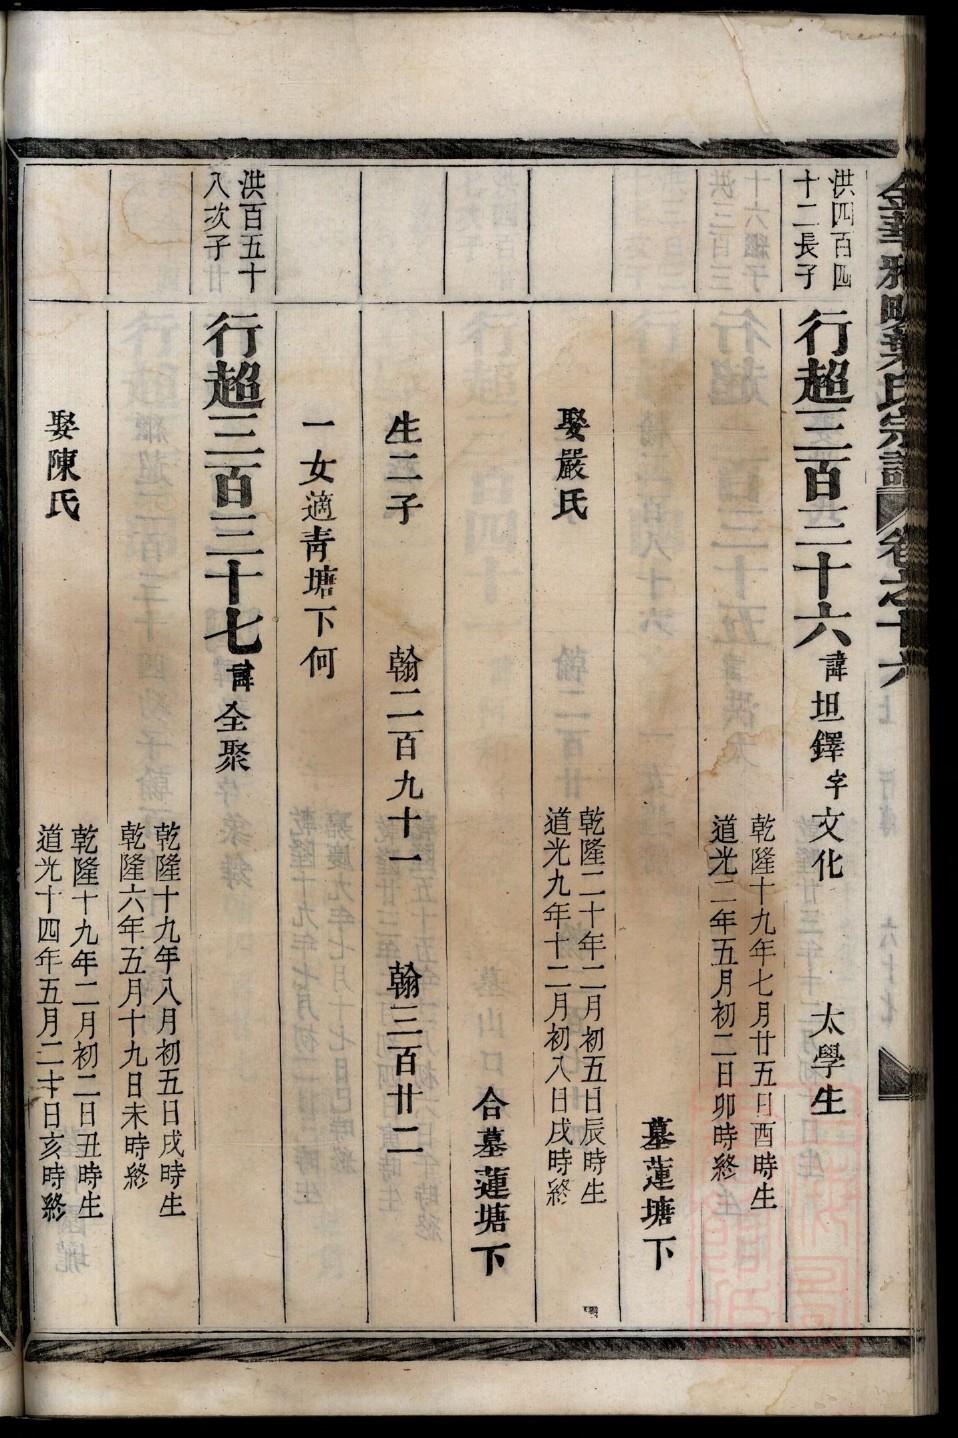 洪四百四
十二長子
行超三百三十六諱坦鐸字文化 太學生
乾隆十九年七月廿五日酉時生
道光二年五月初二日卯時終
墓蓮塘下
娶嚴氏
乾隆二十年二月初五日辰時生
道光九年十二月初八日戌時終
合墓蓮塘下
生二子 翰二百九十一 翰三百廿二
一女適青塘下何
洪百五十
八次子
行超三百三十七諱全聚
乾隆十九年八月初五日戌時生
乾隆六年五月十九日未時終
娶陳氏
乾隆十九年二月初二日丑時生
道光十四年五月二十日亥時終